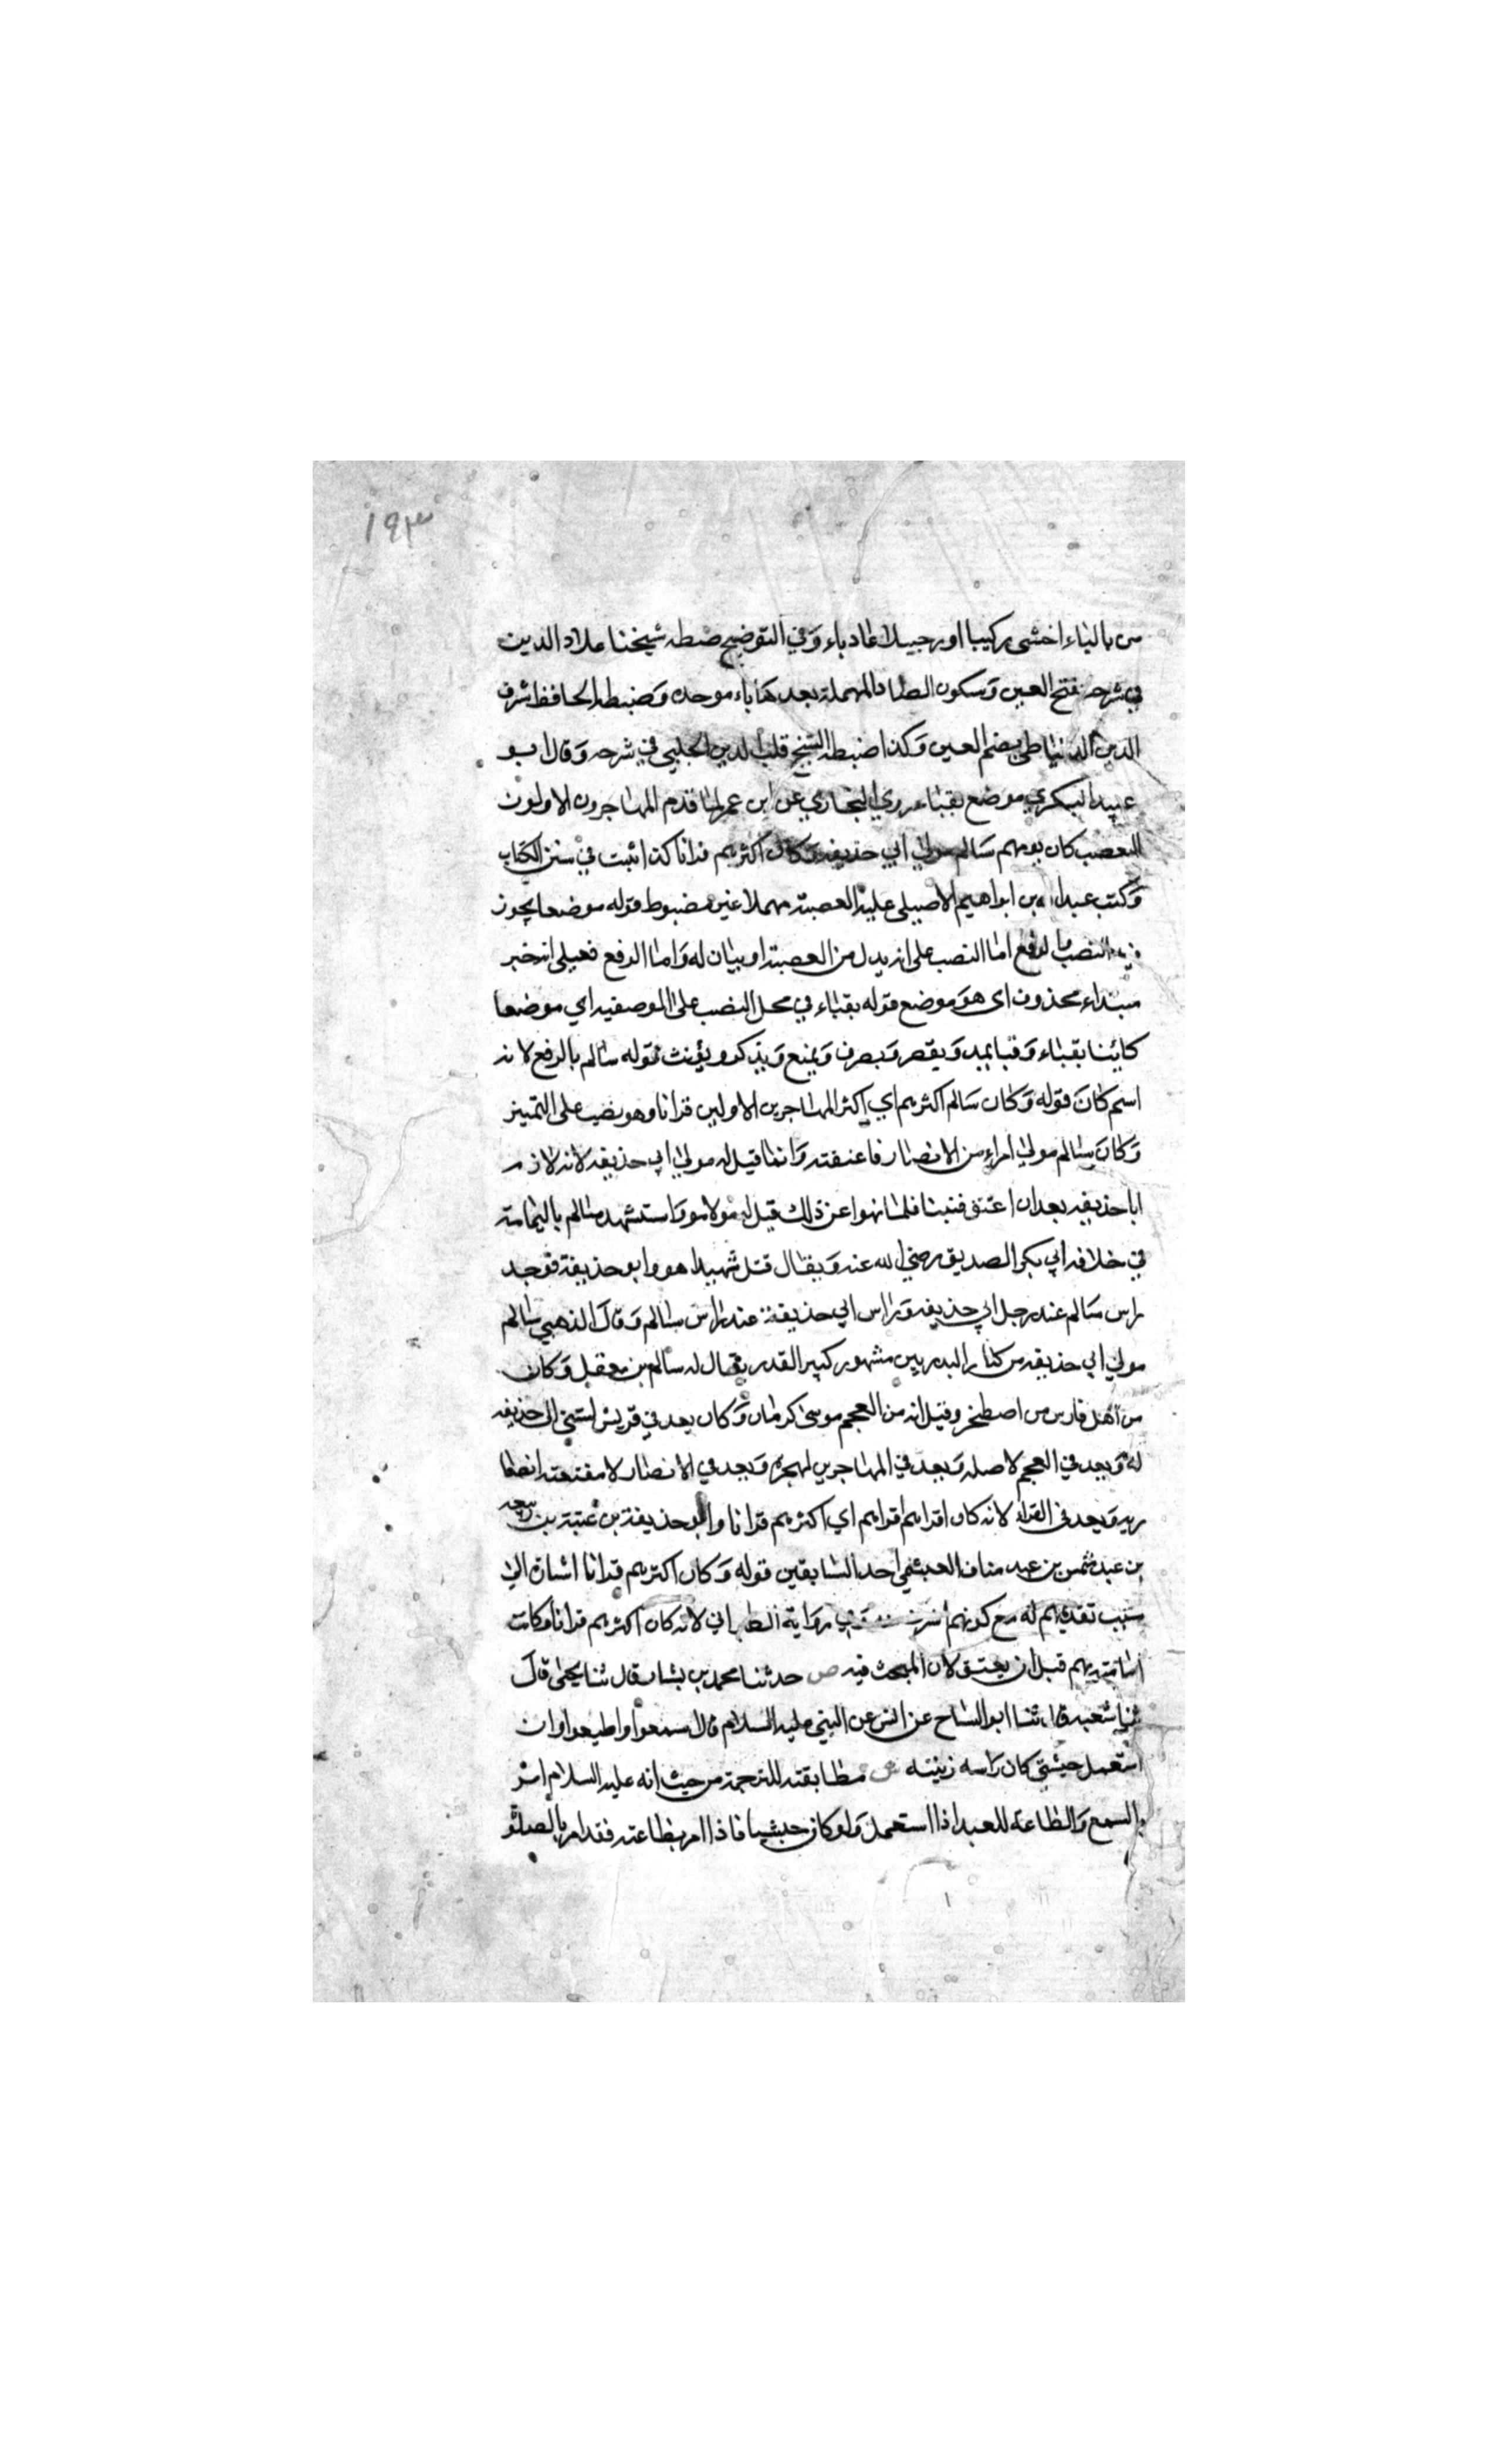 ١٩٣
من بالياء اخشى ركيبا او رجيلا عاديا وفي التوضيح ضبطه شيخنا علاء الدين
في شرحه بفتح العين وسكون الصاد المهملة بعدها باء موحدة وضبطه الحافظ شرف
الدين الدمياطي بضم العين وكذا ضبطه الشيخ قطب الدين الحلبي في شرحه وقال ابو
عبيد البكري موضع بقباء روي البخاري عن ابن عمر لما قدم المهاجرون الاولون
العصب كان يومهم سالم مولي ابي حذيفه وكان اكثرهم قرانا كذا ثبت في متن الكتاب
وكتب عبد الله بن ابراهيم الاصيلي عليه العصبة مهملا غير مضبوط قوله موضعا يجوز
فيه النصب والرفع اما النصب على انه بدل من العصبة او بيان له واما الرفع فعلى انه خبر
مبتداء محذوف اي هو موضع قوله بقباء في محل النصب على الوصفيه اي موضعا
كائنا بقباء وقبا يمد ويقصر ويصرف ويمنع ويذكر ويؤنث قوله سالم بالرفع لانه
اسم كان قوله وكان سالم اكثرهم اي اكثر المهاجرين الاولين قرانا وهو نصب على التمييز
وكان سالم مولي امراة من الانصار فاعتقته وانما قيل له مولي ابي حذيفه لانه لازم
ابا حذيفه بعد ان اعتق فتبنا فلما نهوا عن ذلك قيل له مولاه واستشهد سالم باليمامة
في خلافه ابي بكر الصديق رضي الله عنه ويقال قتل شهيدا هو وابو حذيفة فوجد
راس سالم عند رجل ابي حذيفه وراس ابي حذيفة عند راس سالم وقال الذهبي سالم
مولي ابي حذيفه من كبار البدريين مشهور كبير القدر يقال له سالم بن معقل وكان
من اهل فارس من اصطخر وقيل انه من العجم موسى كرمان وكان يعد في قريش لتبني ابي حذيفه
له ويعد في العجم لاصله ويعد في المهاجرين لهجرته ويعد في الانصار لا معتقته انصا
ريه ويعد في القراء لانه كان اقراهم اي اكثرهم قرانا وابو حذيفة بن عتبة بن ربيعه
بن عبد شمس بن عبد مناف العبشمي احد السابقين قوله وكان اكثرهم قرانا اشارة الي
سبب تقديمهم له مع كونهم اشرف وفي رواية الطبراني لانه كان اكثرهم قرانا وكانت
امامته بهم قبل ان يعتق لان المبحث فيه ص حدثنا محمد بن بشار قال ثنا يحي قال
ثنا شعبه قال ثنا ابو التياح عن انس عن النبي عليه السلام قال اسمعوا واطيعوا وان
استعمل حبشي كان راسه زبيبه ش مطابقته للترجمة من حيث انه عليه السلام امر
بالسمع والطاعة للعبد اذا استعمل ولو كان حبشيا فاذا امر بطاعته فقد امر بالصلوة